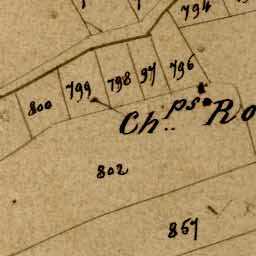 794
799 798 97 796
800
Ch..ps Ro
802
867